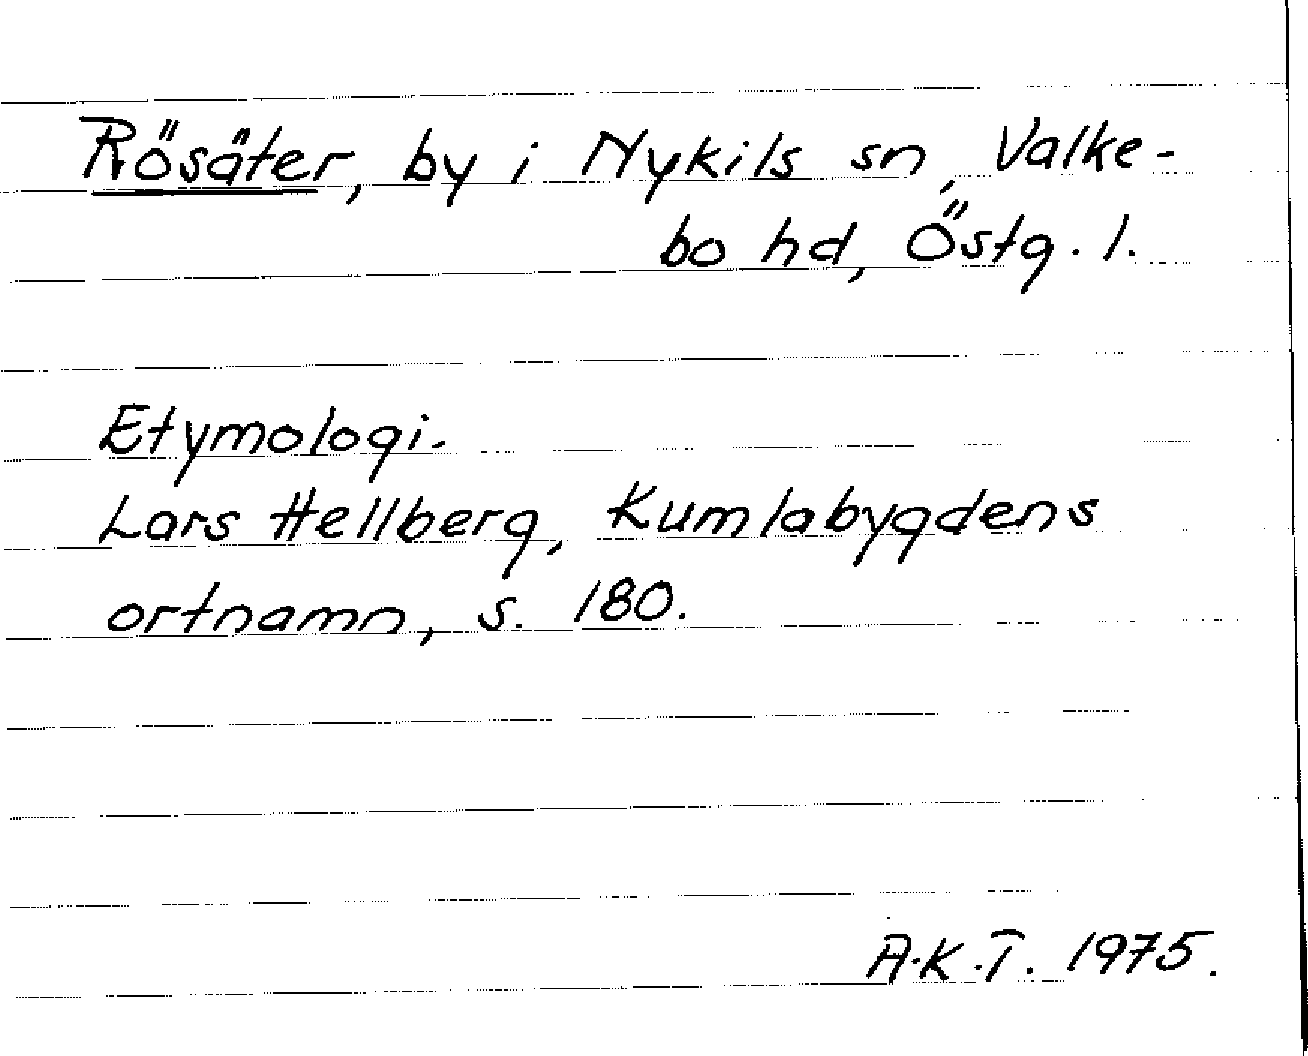 Rösäter, by i Nykils sn, Valke-
bo hd, Östg. l.
Etymologi.
Lars Hellberg, Kumlabygdens
ortnamn, s. 180.
A.K.T. 1975.